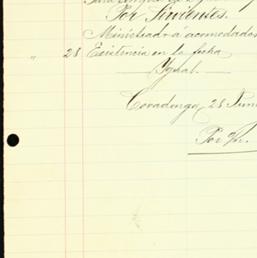 Por Sirvientes.
Ministrad á acomodados
" 28 Existencia en la fecha
Ygual.
Covadonga, 28 Jun
Por